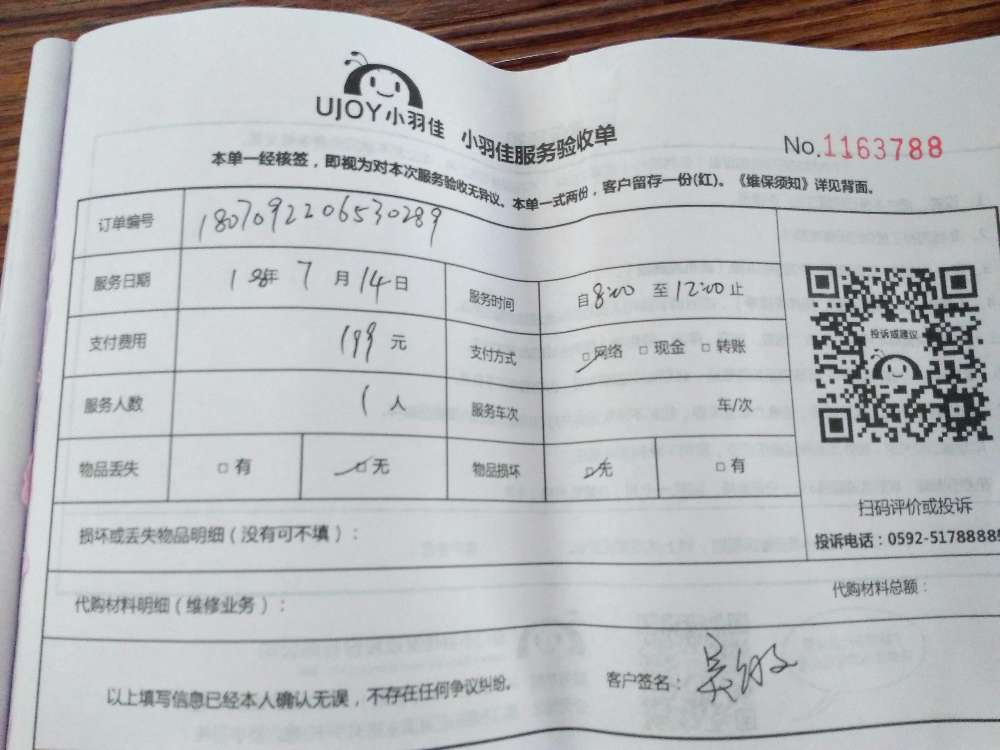 UJOY小羽佳 小羽佳服务验收单
No.1163788
本单一经核签，即视为对本次服务验收无异议。本单一式两份，客户留存一份(红)。《维保须知》详见背面。
订单编号 1807092206530289
服务日期 18年 7月14日 服务时间 自8:00至12:00止
支付费用 199元 支付方式 网络 现金 转账
服务人数 1人 服务车次 车/次
物品丢失 有 无 物品损坏 无 有
投诉或建议
扫码评价或投诉
投诉电话：0592-51788885
损坏或丢失物品明细（没有可不填）：
代购材料明细（维修业务）： 代购材料总额：
以上填写信息已经本人确认无误，不存在任何争议纠纷。 客户签名：